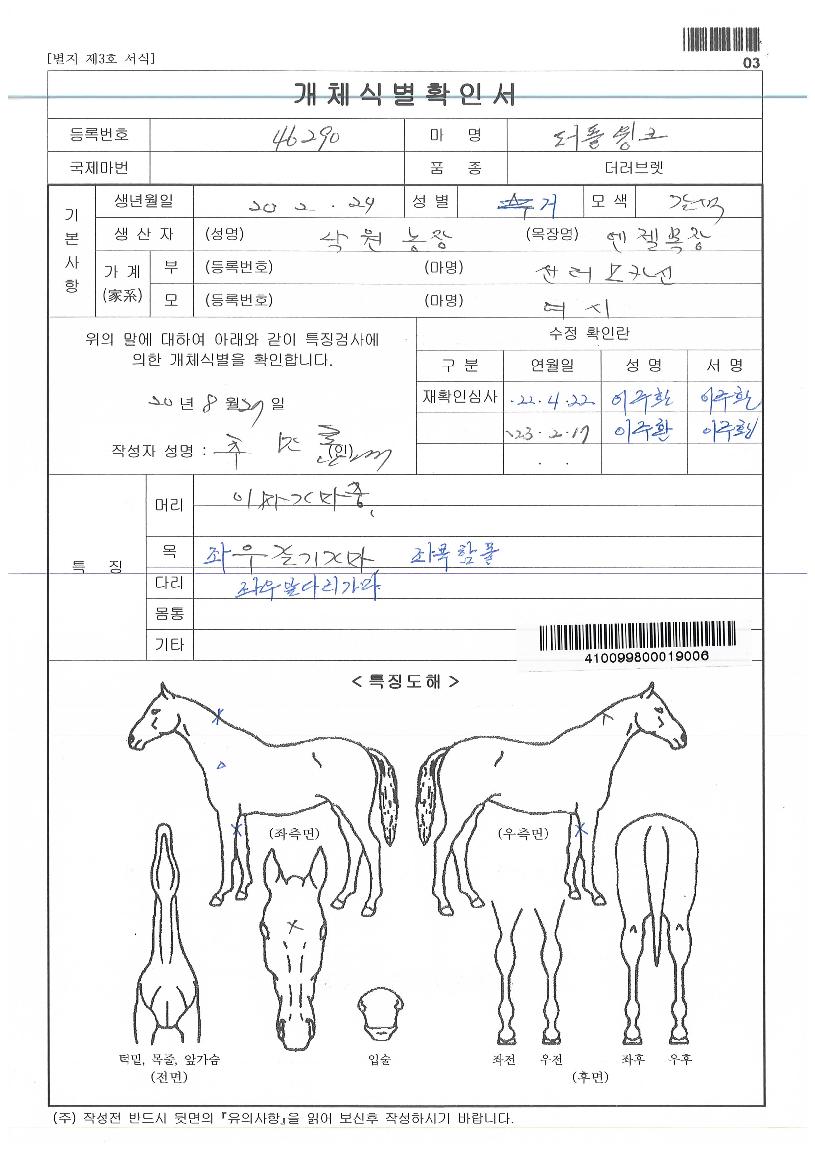 [별지 제3호 서식]
03
개체식별확인서
등록번호 46290 마 명 더블윙크
국제마번 품 종 더러브렛
기본사항
생년월일 20 2. 24 성 별 수 거 모 색 갈색
생 산 자 (성명) 낙원농장 (목장명) 엔젤목장
가 계 (家系) 부 (등록번호) (마명)
모 (등록번호) (마명) 여시
위의 말에 대하여 아래와 같이 특징검사에
의한 개체식별을 확인합니다.
20 년 8 월 27 일
작성자 성명 : (인)
수정 확인란
구 분 연월일 성 명 서 명
재확인심사 22. 4. 22 이주환 이주환
23. 2. 17 이주환 이주환
. .
특 징
머리
목 좌우즐기가마 좌목함몰
다리 좌우앞다리가마
몸통
기타
410099800019006
< 특징도해 >
(좌측면) (우측면)
턱밑, 목줄, 앞가슴 입술 좌전 우전 좌후 우후
(전면) (후면)
(주) 작성전 반드시 뒷면의 『유의사항』을 읽어 보신후 작성하시기 바랍니다.